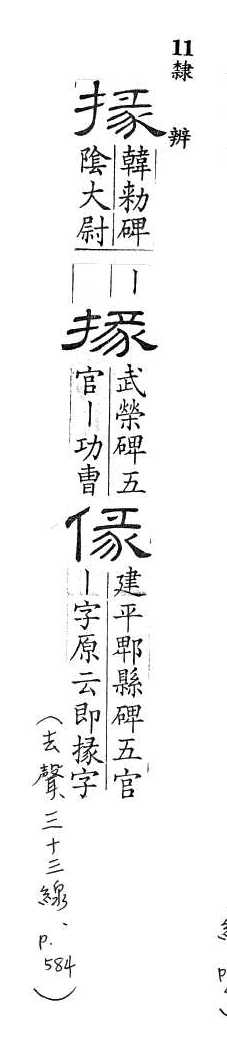 11 隸辨
掾
韓勑碑
陰大尉
丨
掾
武榮碑五
官丨功曹
建平郫縣碑五官
丨字原云即掾字
（去聲三十三線、p.584）